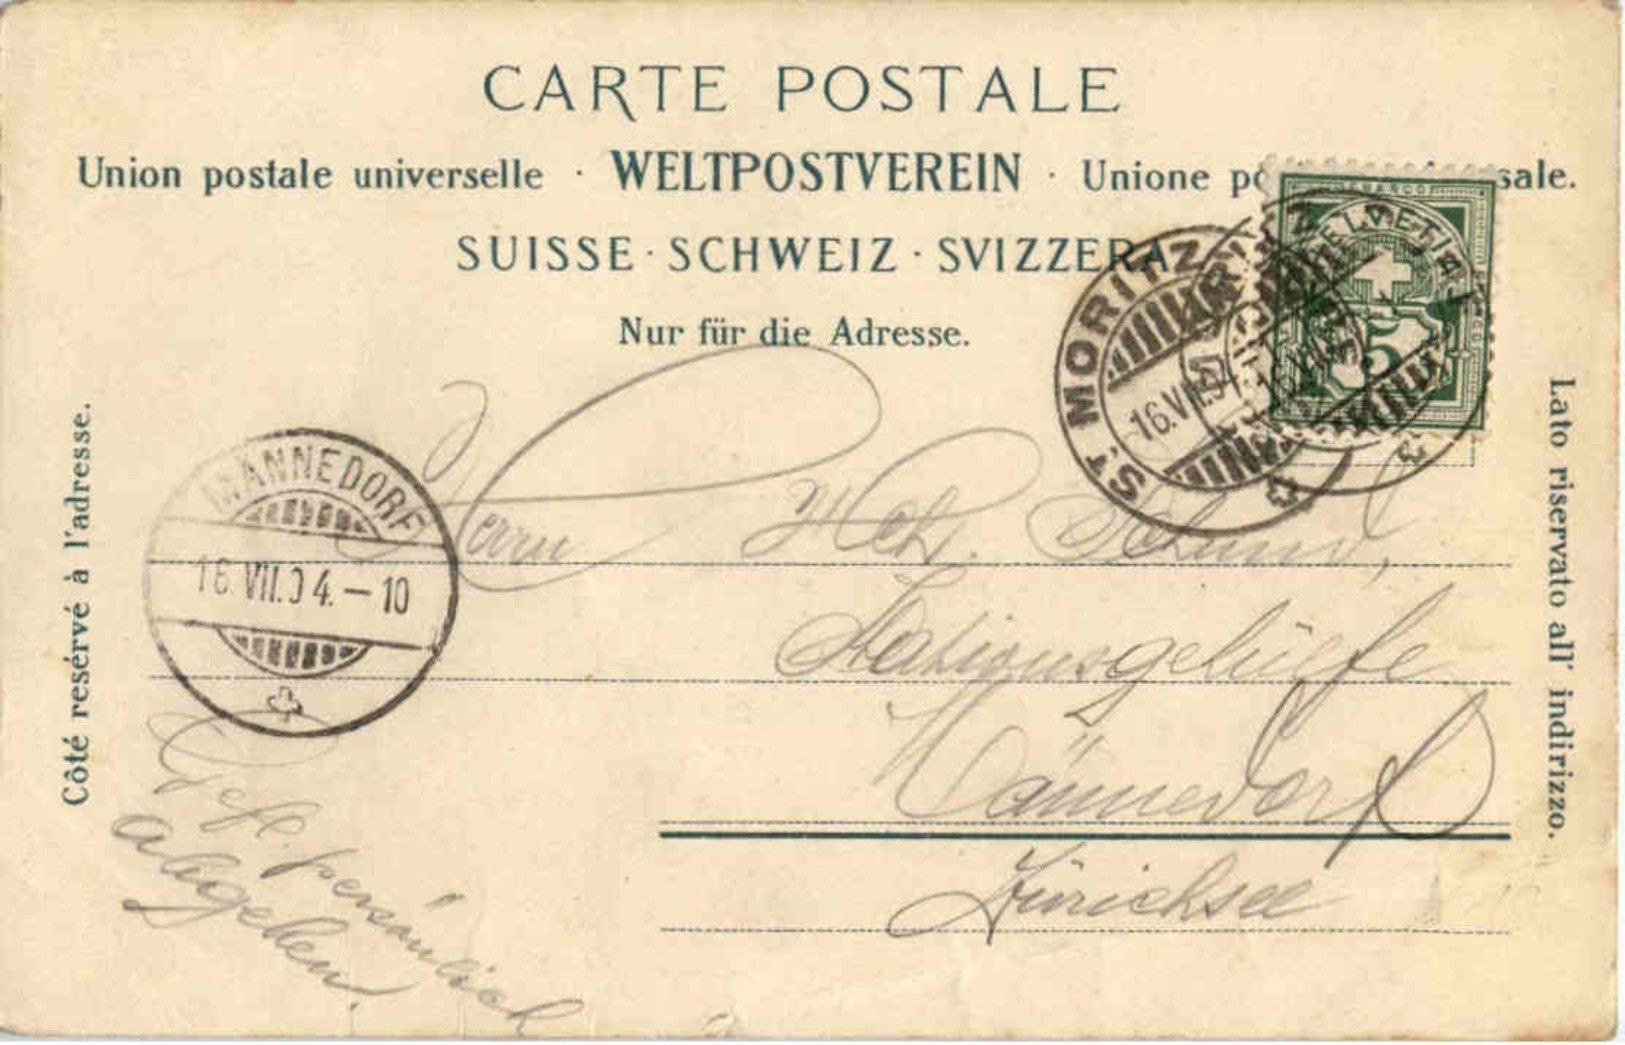 CARTE POSTALE
Union postale universelle · WELTPOSTVEREIN · Unione po sale.
SUISSE · SCHWEIZ · SVIZZERA
Nur für die Adresse.
HELVETIA
5
ST. MORITZ
16.VII.04.
MÄNNEDORF
16.VII.04.–10
Herrn Hch. Schmid,
Stationsgehülfe
Männedorf
Zürichsee
Gefl. persönlich
abgeben.
Côté resérvé à l'adresse.
Lato riservato all' indirizzo.